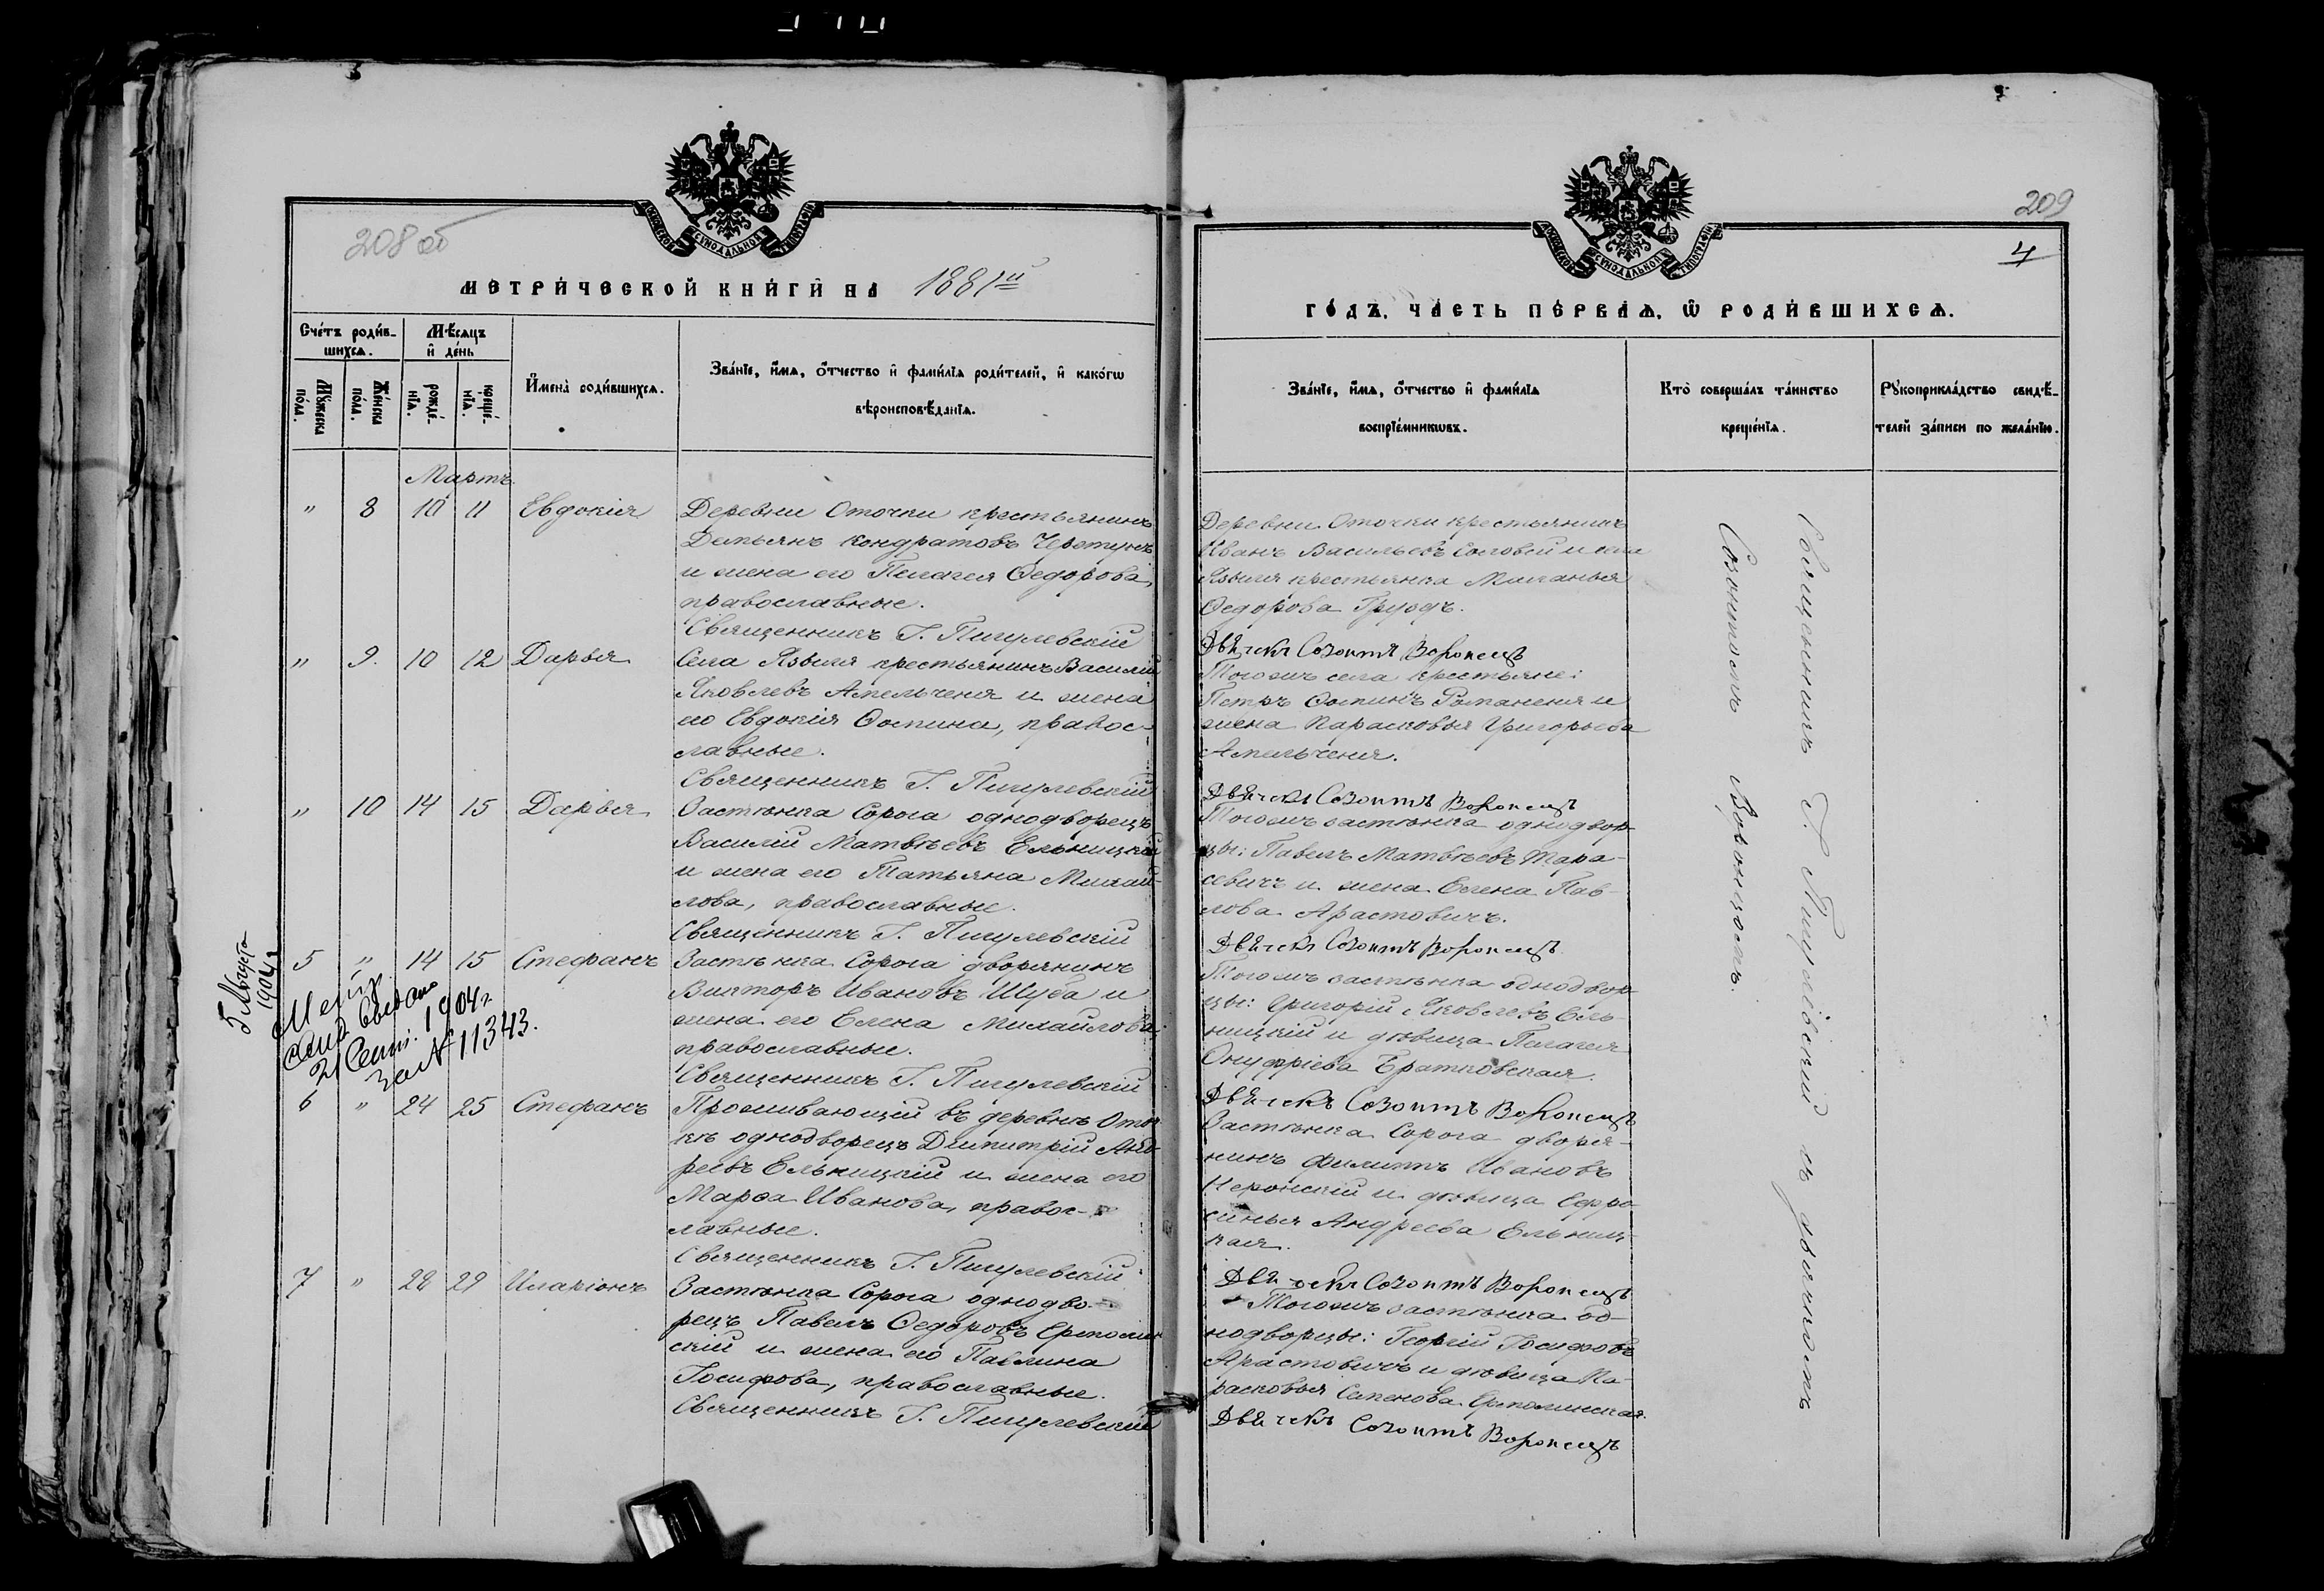 208 об
МОСКОВСКОЙ СѴНОДАЛЬНОЙ ТИПОГРАФІИ
МЕТРИ́ЧЕСКОЙ КНИ́ГИ НА 1881й
Сче́тъ роди́в-
шихсѧ.
Мѣ́сѧцъ
и҆ де́нь
Мꙋ́жеска
по́ла.
Же́нска
по́ла.
рожде́-
нїѧ.
креще́-
нїѧ.
И҆мена̀ роди́вшихсѧ.
Зва́нїе, и҆́мѧ, ѻ҆́тчество и҆ фами́лїѧ роди́телей, и҆ како́гѡ
вѣроисповѣ́данїѧ.
Мартъ.
" 8 10 11 Евдокія
Деревни Оточки крестьянинъ
Демьянъ Кондратовъ
и жена его Пелагея Ѳедорова,
православные.
Священникъ Г. Пигулевскій
" 9. 10 12 Дарья
Села Языля крестьянинъ Василій
Яковлевъ Амельченя и жена
его Евдокія Ѳомина, правос-
лавные.
Священникъ Г. Пигулевскій
" 10 14 15 Дарья
Застѣнка Сорога однодворецъ
Василій Матвѣевъ Ельницкій
и жена его Татьяна Михай-
лова, православные.
Священникъ Г. Пигулевскій
5 " 14 15 Стефанъ
Застѣнка Сорога дворянинъ
Викторъ Ивановъ Шуба и
жена его Елена Михайлова,
православные.
Священникъ Г. Пигулевскій
5 Августа
1904 г
1904 г
за № 11343.
6 " 24 25 Стефанъ
Проживающій въ деревнѣ Оточ
кѣ однодворецъ Димитрій Анд-
реевъ Ельницкій и жена его
Марѳа Иванова, правос-
лавные.
Священникъ Г. Пигулевскій
7 " 28 29 Иларіонъ
Застѣнка Сорога однодво-
рецъ Павелъ Ѳедоровъ Ермолин
скій и жена его Павлина
Іосифова, православные.
Священникъ Г. Пигулевскій
209
4
МОСКОВСКОЙ СѴНОДАЛЬНОЙ ТИПОГРАФІИ
ГО́ДЪ, ЧА́СТЬ ПЕ́РВАѦ, Ѡ҆ РОДИ́ВШИХСѦ.
Зва́нїе, и҆́мѧ, ѻ҆́тчество и҆ фами́лїѧ
воспрїе́мникѡвъ.
Кто̀ соверша́лъ та́инство
креще́нїѧ.
Рꙋкоприкла́дство свидѣ́-
телей за́писи по жела́нїю.
Деревни Оточки крестьянинъ
Иванъ Васильевъ Соловей и села
Языля крестьянка Миланья
Ѳедорова Груодъ.
Дьячекъ Созонтъ Воронецъ
Того жъ села крестьяне:
Петръ Ѳоминъ Романеня и
жена Парасковья Григорьева
Амельченя.
Дьячекъ Созонтъ Воронецъ
Того жъ застѣнка однодвор-
цы: Павелъ Матвѣевъ Тара-
севичъ и жена Елена Пав-
лова Арастовичъ.
Дьячекъ Созонтъ Воронецъ
Того жъ застѣнка однодвор-
цы: Григорій Яковлевъ Ель-
ницкій и дѣвица Пелагея
Онуфріева Братковская.
Дьячекъ Созонтъ Воронецъ
Застѣнка Сорога дворя-
нинъ Филиппъ Ивановъ
и дѣвица Ефро-
синья Андреева Ельниц-
кая.
Дьячекъ Созонтъ Воронецъ
Того жъ застѣнка од-
нодворцы: Георгій Іосифовъ
Арастовичъ и дѣвица Па-
расковья Семенова Ермолинская.
Дьячекъ Созонтъ Воронецъ
Священникъ Г. Пигулевскій съ дьячкомъ
Созонтомъ Воронцомъ.